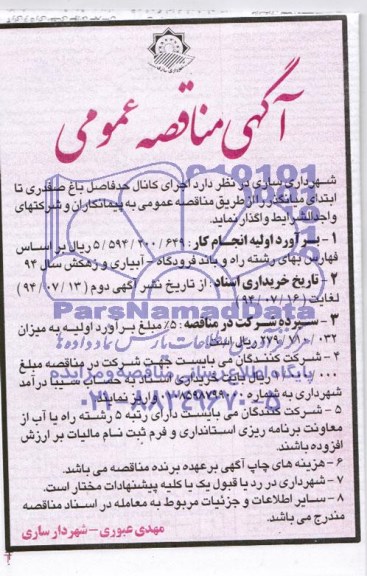 آگهی مناقصه عمومی
شهرداری ساری در نظر دارد اجرای کانال حدفاصل باغ صفدری تا
ابتدای میانگذر را از طریق مناقصه عمومی به پیمانکاران و شرکتهای
واجدالشرایط واگذار نماید.
۱- برآورد اولیه انجام کار : ۵/۵۹۴/۲۰۰/۶۴۹ ریال بر اساس
فهارس بهای رشته راه و باند فرودگاه - آبیاری و زهکش سال ۹۴
۲- تاریخ خریداری اسناد : از تاریخ نشر آگهی دوم (۹۴/۰۷/۱۳)
لغایت (۹۴/۰۷/۱۶)
۳- سپرده شرکت در مناقصه : ۵٪ مبلغ برآورد اولیه به میزان
۲۷۹/۷۱۰/۰۳۲ ریال است.
۴- شرکت کنندگان می بایست جهت شرکت در مناقصه مبلغ
ریال بابت خریداری اسناد به حساب سیبا درآمد
شهرداری به شماره واریز نمایند.
۵- شرکت کنندگان می بایست دارای رتبه ۵ رشته راه یا آب از
معاونت برنامه ریزی استانداری و فرم ثبت نام مالیات بر ارزش
افزوده باشند.
۶- هزینه های چاپ آگهی برعهده برنده مناقصه می باشد.
۷- شهرداری در رد یا قبول یک یا کلیه پیشنهادات مختار است.
۸- سایر اطلاعات و جزئیات مربوط به معامله در اسناد مناقصه
مندرج می باشد.
مهدی عبوری - شهردار ساری
ParsNamadData
پایگاه اطلاع رسانی مناقصه و مزایده